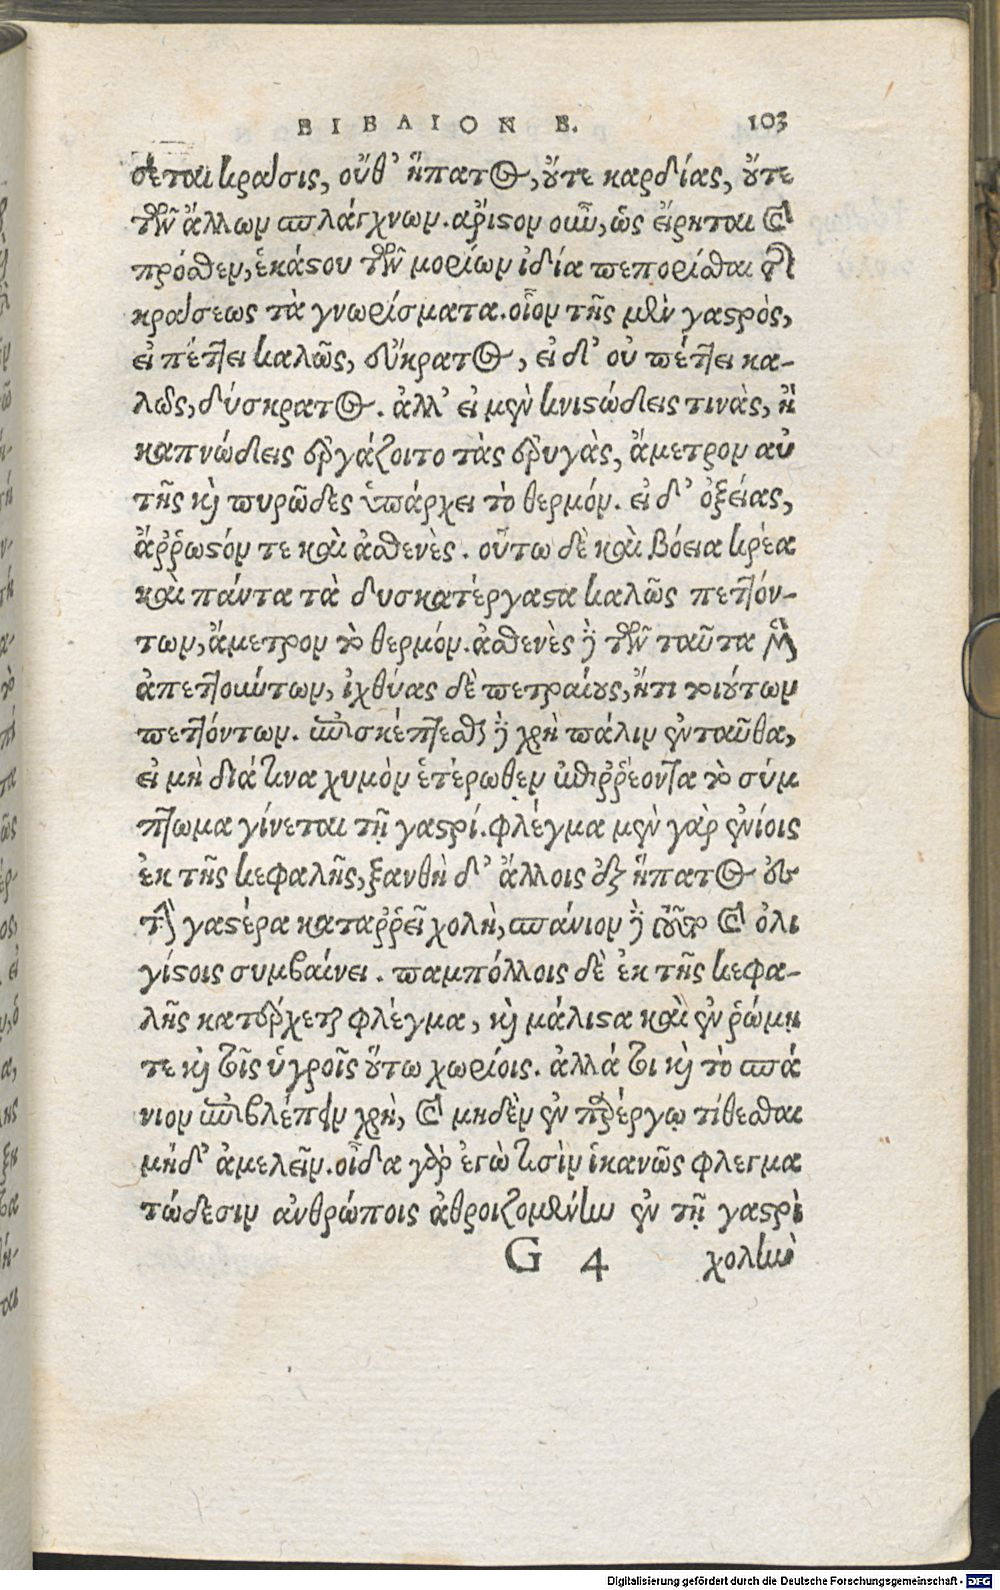 ΒΙΒΛΙΟΝ Β. 103
σεται κρᾶσις, οὔθ᾽ ἥπατος, ὔτε καρδίας, ὔτε
τῶν ἄλλων σπλάγχνων. ἄριστον οὖν, ὡς εἴρηται καὶ
πρόσθεν, ἑκάστου τῶν μορίων ἰδίᾳ πεπορίσθαι τῆς
κράσεως τὰ γνωρίσματα. οἷον τῆς μὲν γαστρὸς,
εἰ πέττει καλῶς, εὔκρατος, εἰ δ᾽ οὐ πέττει κα-
λῶς, δύσκρατος. ἀλλ᾽ εἰ μὲν κνισώδεις τινὰς, ἢ
καπνώδεις ἐργάζοιτο τὰς ἐρυγὰς, ἄμετρον αὐ
τῆς καὶ πυρῶδες ὑπάρχει τὸ θερμόν. εἰ δ᾽ ὀξείας,
ἄρρωστόν τε καὶ ἀσθενὲς. οὕτω δὲ καὶ βόεια κρέα
καὶ πάντα τὰ δυσκατέργαστα καλῶς πεττόν-
των, ἄμετρον τὸ θερμόν. ἀσθενὲς δὲ τῶν ταῦτα μὲν
ἀπεπτούντων, ἰχθύας δὲ πετραίους, ἤτι τοιούτων
πεττόντων. ἐπισκέπτεσθαι δὲ χρὴ πάλιν ἐνταῦθα,
εἰ μὴ διά τινα χυμὸν ἑτέρωθεν ἐπιρρέοντα τὸ σύμ
πτωμα γίνεται τῇ γαστρί. φλέγμα μὲν γὰρ ἐνίοις
ἐκ τῆς κεφαλῆς, ξανθὴ δ᾽ ἄλλοις ἐξ ἥπατος εἰς
τὴν γαστέρα καταρρεῖ χολὴ, σπάνιον δὲ τοῦτο καὶ ὀλι
γίστοις συμβαίνει. παμπόλλοις δὲ ἐκ τῆς κεφα-
λῆς κατέρχεται φλέγμα, καὶ μάλιστα καὶ ἐν ῥώμῃ
τε καὶ τοῖς ὑγροῖς οὕτω χωρίοις. ἀλλά τι καὶ τὸ σπά
νιον ἐπιβλέπειν χρὴ, καὶ μηδὲν ἐν παρέργῳ τίθεσθαι
μηδ᾽ ἀμελεῖν. οἶδα γὰρ ἐγὼ τισὶν ἱκανῶς φλεγμα
τώδεσιν ἀνθρώποις ἀθροιζομένην ἐν τῇ γαστρὶ
G 4 χολὴν
Digitalisierung gefördert durch die Deutsche Forschungsgemeinschaft - DFG